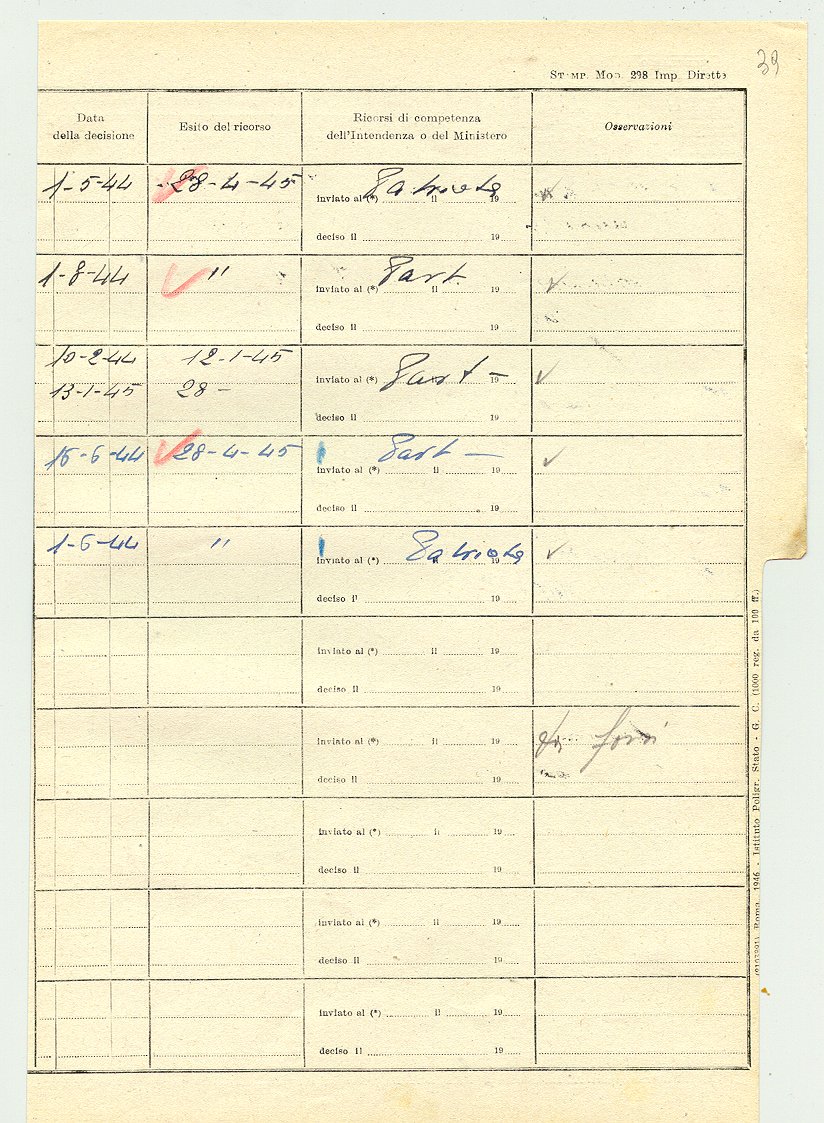 39
STAMP. MOD. 298 Imp. Dirette
Data
della decisione
Esito del ricorso
Ricorsi di competenza
dell'Intendenza o del Ministero
Osservazioni
1-5-44 28-4-45 Patriota
inviato al (*) il 19
deciso il 19
1-8-44 " Part.
inviato al (*) il 19
deciso il 19
10-2-44 12-1-45
13-1-45 28 - Part -
inviato al (*) 19
deciso il 19
16-6-44 28-4-45 Part -
inviato al (*) il 19
deciso il 19
1-6-44 " Patriota
inviato al (*) il 19
deciso il 19
inviato al (*) il 19
deciso il 19
inviato al (*) il 19
deciso il 19
inviato al (*) il 19
deciso il 19
inviato al (*) il 19
deciso il 19
inviato al (*) il 19
deciso il 19
Roma, 1946 - Istituto Poligr. Stato - G. C. (1000 reg. da 100 ff.)